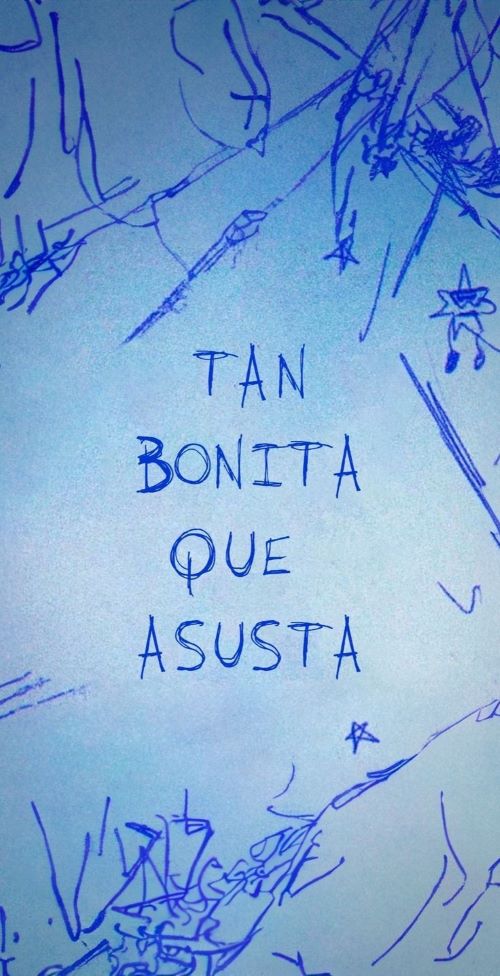 TAN
BONITA
QUE
ASUSTA